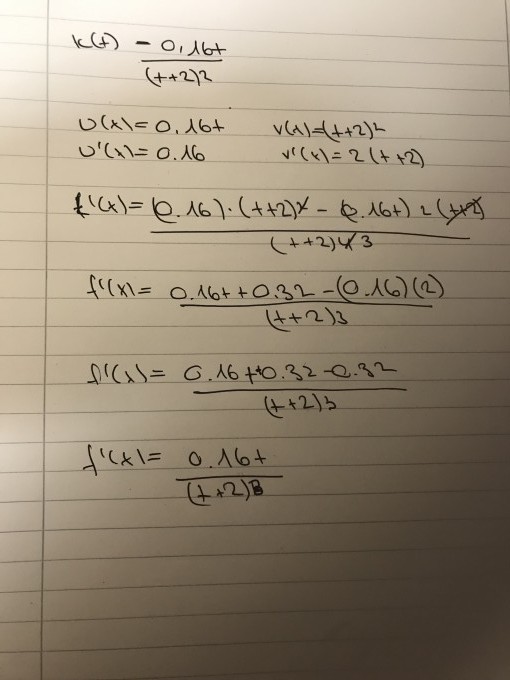 K(t) = 0,16t/(t+2)²
U(x)=0,16t V(x)=(t+2)²
U'(x)=0.16 V'(x)=2(t+2)
f'(x)= (0.16)·(t+2)² - (0.16t) 2 (t+2)/(t+2)4 3
f'(x)= 0.16t+0.32-(0.16)(2)/(t+2)3
f'(x)= 0.16t+0.32-0.32/(t+2)3
f'(x)= 0.16t/(t+2)3